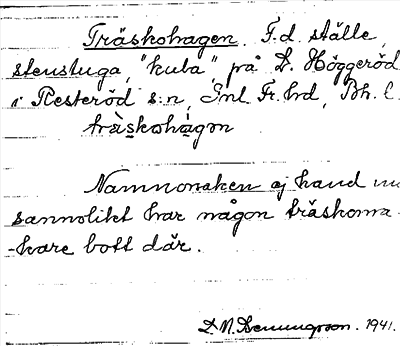 Träskohagen. F.d ställe,
stenstuga, "kuba", på L. Höggeröd
i Resteröd s:n, Inl. Fr. hd, Bh. l.
tràskohàgɔn
Namnorsaken ej känd
sannolikt har någon träskoma-
-kare bott där.
1941.